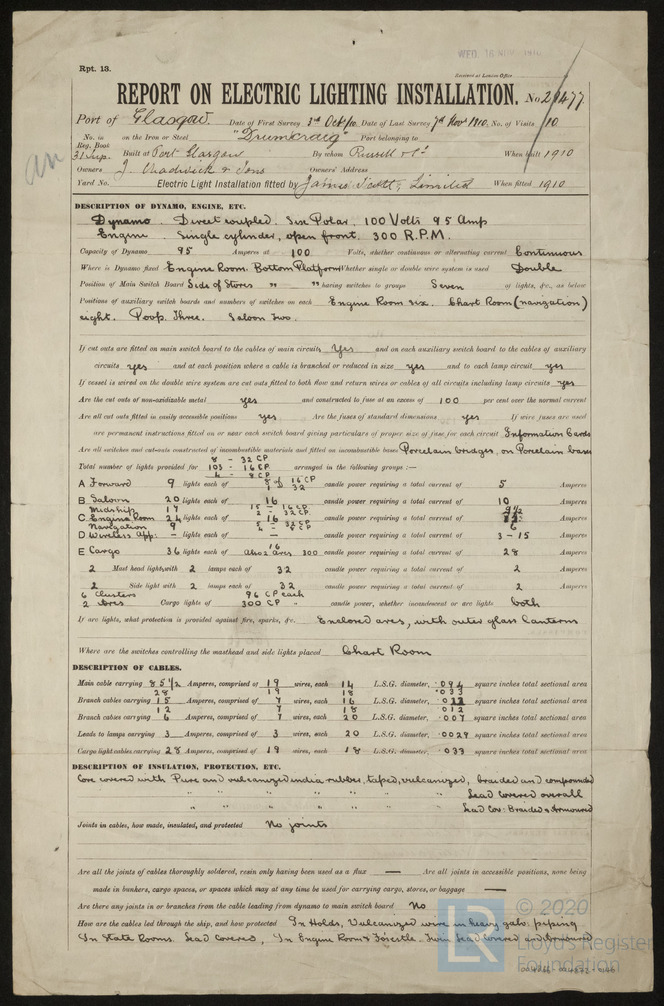 WED. 16 NOV. 1910
Rpt. 13.
Received at London Office
REPORT ON ELECTRIC LIGHTING INSTALLATION. No. 29477.
Port of Glasgow Date of First Survey 3rd Oct/10. Date of Last Survey 7th Nov 1910. No. of Visits 10
No. in Reg. Book on the Iron or Steel "Drumcraig" Port belonging to
31 Sup. Built at Port Glasgow By whom Russell & Co When built 1910
Owners J. Chadwick & Sons Owners' Address
Yard No. Electric Light Installation fitted by James Scott, Limited When fitted 1910
DESCRIPTION OF DYNAMO, ENGINE, ETC.
Dynamo. Direct coupled. Six Polar. 100 Volts 95 Amp
Engine. Single cylinder, open front. 300 R.P.M.
Capacity of Dynamo 95 Amperes at 100 Volts, whether continuous or alternating current Continuous
Where is Dynamo fixed Engine Room. Bottom Platform Whether single or double wire system is used Double
Position of Main Switch Board Side of Stores " " having switches to groups Seven of lights, &c., as below
Positions of auxiliary switch boards and numbers of switches on each Engine Room six. Chart Room (navigation)
eight. Poop. Three. Saloon two.
If cut outs are fitted on main switch board to the cables of main circuits Yes and on each auxiliary switch board to the cables of auxiliary
circuits yes and at each position where a cable is branched or reduced in size yes and to each lamp circuit yes
If vessel is wired on the double wire system are cut outs fitted to both flow and return wires or cables of all circuits including lamp circuits yes
Are the cut outs of non-oxidizable metal yes and constructed to fuse at an excess of 100 per cent over the normal current
Are all cut outs fitted in easily accessible positions yes Are the fuses of standard dimensions yes If wire fuses are used
are permanent instructions fitted on or near each switch board giving particulars of proper size of fuse for each circuit Information Cards
Are all switches and cut-outs constructed of incombustible materials and fitted on incombustible bases Porcelain bridges, on Porcelain bases
8 - 32 CP
Total number of lights provided for 103 - 16 CP arranged in the following groups :—
4 - 8 CP
A Forward 9 lights each of 8 of 16 CP 1 32 candle power requiring a total current of 5 Amperes
B Saloon 20 lights each of 16 candle power requiring a total current of 10 Amperes
Midship 17 15 - 16 CP 2 - 32 CP 9 1/2
C Engine Room 24 lights each of 16 candle power requiring a total current of 12 Amperes
Navigation 9 5 - 32 CP 4 - 8 CP 6
D Wireless App: - lights each of - candle power requiring a total current of 3-15 Amperes
E Cargo 36 lights each of 16 Also 2 arcs 300 candle power requiring a total current of 28 Amperes
2 Mast head light with 2 lamps each of 32 candle power requiring a total current of 2 Amperes
2 Side light with 2 lamps each of 32 candle power requiring a total current of 2 Amperes
6 Clusters 96 CP each
2 Arcs Cargo lights of 300 CP " candle power, whether incandescent or arc lights both
If arc lights, what protection is provided against fire, sparks, &c. Enclosed arcs, with outer glass lanterns
Where are the switches controlling the masthead and side lights placed Chart Room
DESCRIPTION OF CABLES.
Main cable carrying 85 1/2 Amperes, comprised of 19 wires, each 14 L.S.G. diameter, .094 square inches total sectional area
28 19 18 .033
Branch cables carrying 15 Amperes, comprised of 7 wires, each 16 L.S.G. diameter, square inches total sectional area
12 7 18 .012
Branch cables carrying 6 Amperes, comprised of 7 wires, each 20 L.S.G. diameter, .007 square inches total sectional area
Leads to lamps carrying 3 Amperes, comprised of 3 wires, each 20 L.S.G. diameter, .0029 square inches total sectional area
Cargo light cables carrying 28 Amperes, comprised of 19 wires, each 18 L.S.G. diameter, .033 square inches total sectional area
DESCRIPTION OF INSULATION, PROTECTION, ETC.
Core covered with Pure and vulcanized india rubber, taped, vulcanized, braided and compounded
" " " " " " Lead Covered overall
" " " " " " Lead Cov: Braided & Armoured
Joints in cables, how made, insulated, and protected No joints
Are all the joints of cables thoroughly soldered, resin only having been used as a flux — Are all joints in accessible positions, none being
made in bunkers, cargo spaces, or spaces which may at any time be used for carrying cargo, stores, or baggage —
Are there any joints in or branches from the cable leading from dynamo to main switch board No
How are the cables led through the ship, and how protected In Holds, Vulcanized wire in heavy galv: piping
In State Rooms. Lead Covered, In Engine Room & Forecastle. Twin Lead Covered and armoured
© 2020
LR
Lloyd's Register
Foundation